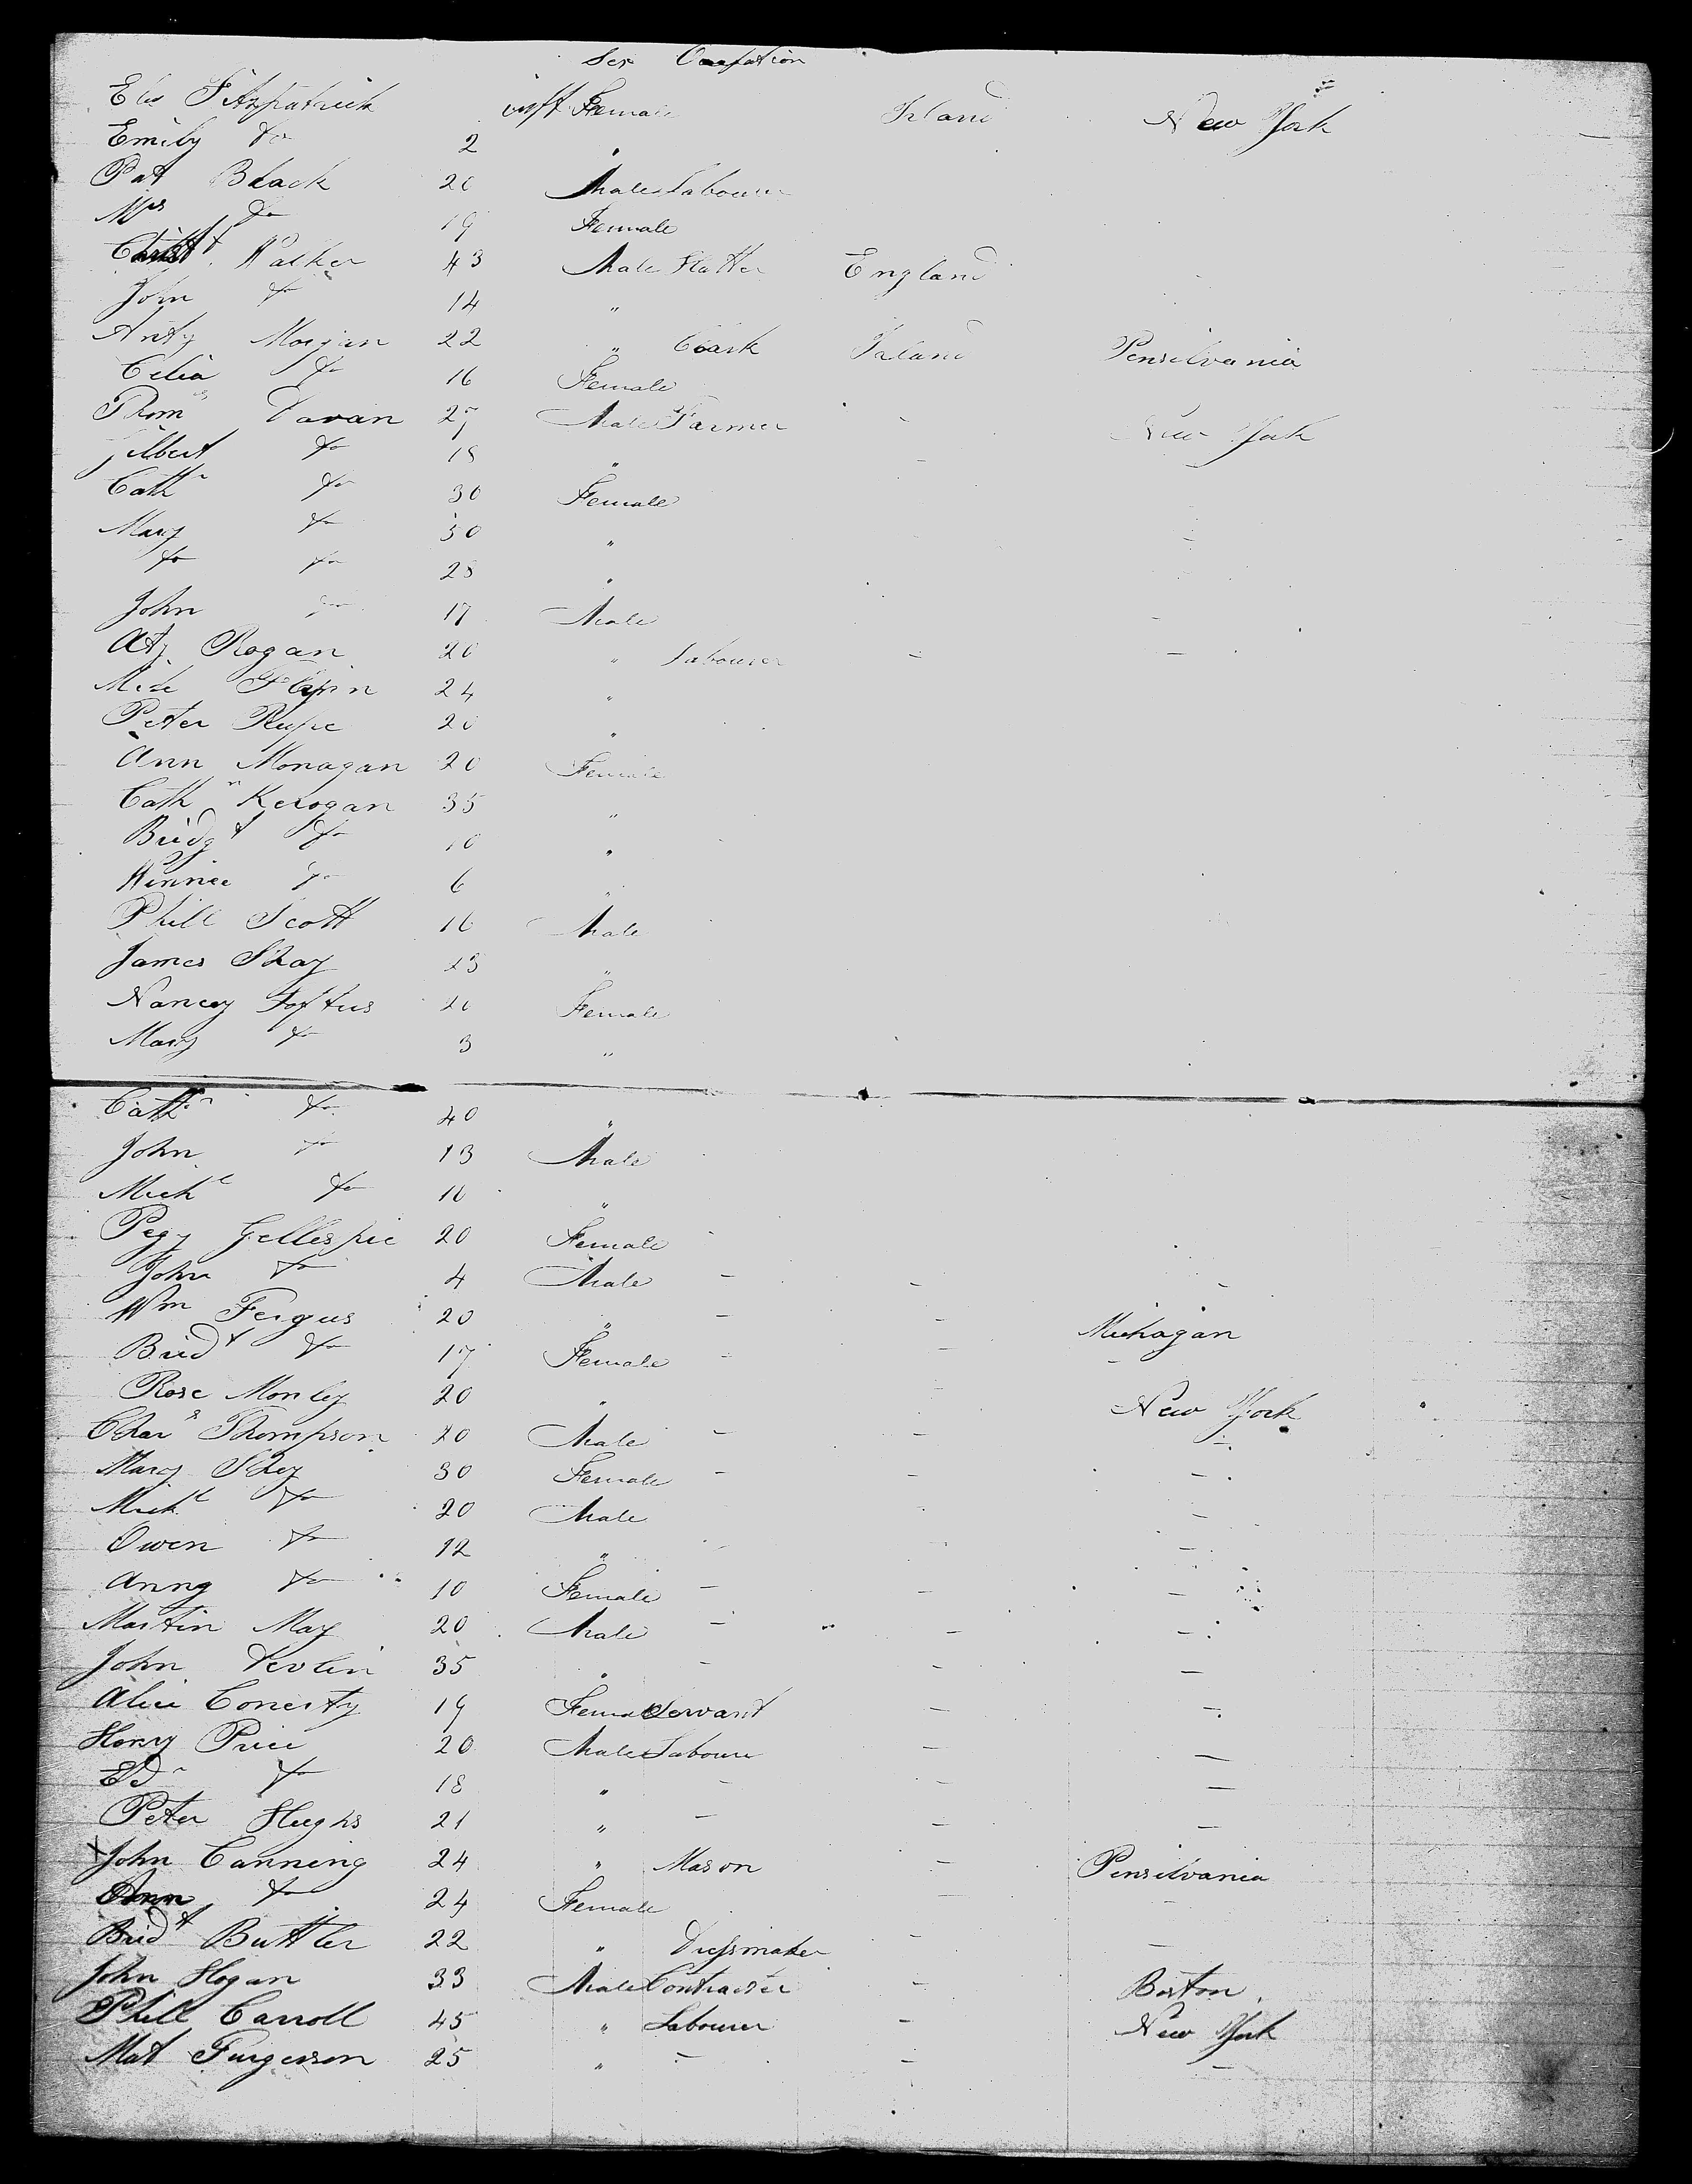 Sex Occupation
Elis Fitzpatrick inft Female Irland New York
Emily do 2 "
Pat Black 20 Male Labourer
Mrs do 19 Female
Christt Walker 43 Male Slatter England
John do 14 "
Anty Morgan 22 " Clark Irland Pensilvania
Celia do 16 Female
Thoms Davan 27 Male Farmer - New York
Gilbert do 18 " - -
Cathn do 30 Female
Mary do 50 " -
do do 28 "
John do 17 Male -
Aty Rogan 20 " Labourer - -
Mich Flynn 24 "
Peter 20 "
Ann Monagan 20 Female
Cathn Kerogan 35 "
Bridgt do 10 "
Winnie do 6 "
Phill Scott 16 Male
James Shay 23 "
Nancy Loftus 20 Female
Mary do 3 "
Cathn do 40 "
John do 13 Male
Michl do 10 "
Pegy Gellespie 20 Female
John do 4 Male - - -
Wm Fergus 20 " - - Michagan
Bridt do 17 Female - - -
Rose Monley 20 " - New York
Chars Thompson 20 Male - - -
Mary Shey 30 Female - - -
Michl do 20 Male -
Owen do 12 " - -
Anny do 10 Female - - -
Martin May 20 Male - - -
John Devlin 35 " - - -
Alice Conerty 19 Female Servant - -
Henry Price 20 Male Laboure - -
Ed do 18 " - - -
Peter Hughs 21 " - - -
John Canning 24 " Mason - Pensilvania
Ann do 24 Female - -
Bridt Buttler 22 " Dressmaker - -
John Hogan 33 Male Contracter - Boston
Phill Carroll 45 " Labourer - New York
Mat Furgerson 25 " - - -